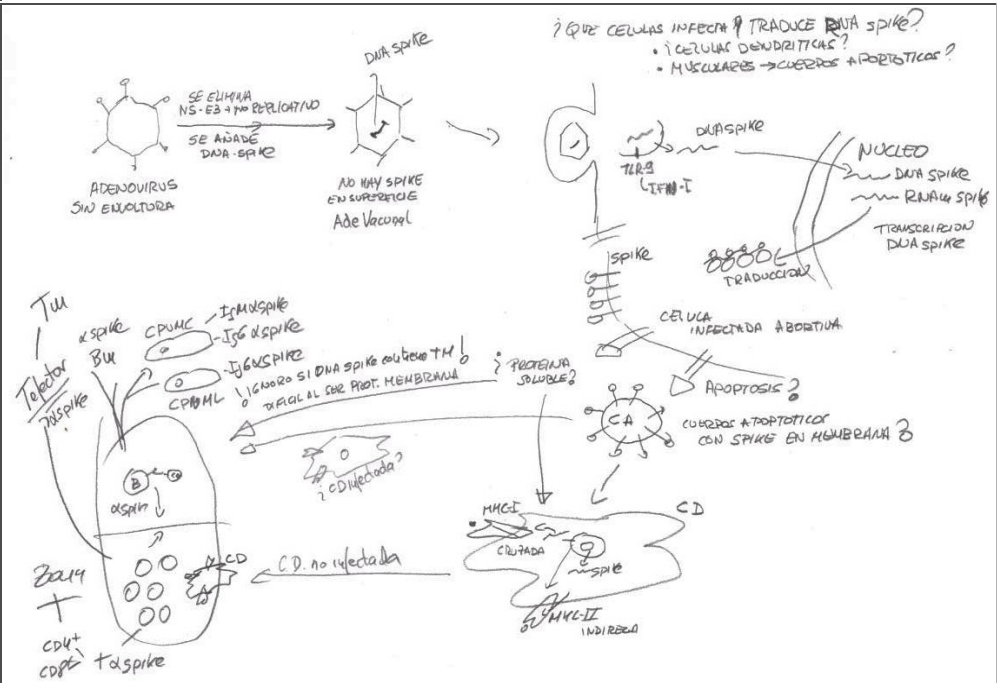 ¿QUE CELULAS INFECTA Y TRADUCE RNA SPIKE?
• ¿CELULAS DENDRITICAS?
• MUSCULARES → CUERPOS APORTOTICOS?
DNA SPIKE
SE ELIMINA
NS-E3 → NO REPLICATIVO
SE AÑADE
DNA-SPIKE
ADENOVIRUS
SIN ENVOLTURA
NO HAY SPIKE
EN SUPERFICIE
Ade Vacunal
TLR-9
IFN-I
DNA SPIKE
NUCLEO
DNA SPIKE
RNAm SPIKE
TRANSCRIPCION
DNA SPIKE
TRADUCCION
SPIKE
CELULA
INFECTADA ABORTIVA
¿PROTEINA
SOLUBLE?
APOPTOSIS?
CA
CUERPOS APOPTOTICOS
CON SPIKE EN MEMBRANA?
TM
Tefector
αspike
αspike
BM
CPUMC
IgMαSPIKE
IgGαSPIKE
IgGαSPIKE
¡IGNORO SI DNA SPIKE contiene TM!
DIFICIL AL SER PROT. MEMBRANA
B
αspik
¿CD infectada?
CD
CD. no infectada
MHC-I
CRUZADA
SPIKE
CD
MHC-II
INDIRECTA
Zona T
CD4+
CD8+
Tαspike